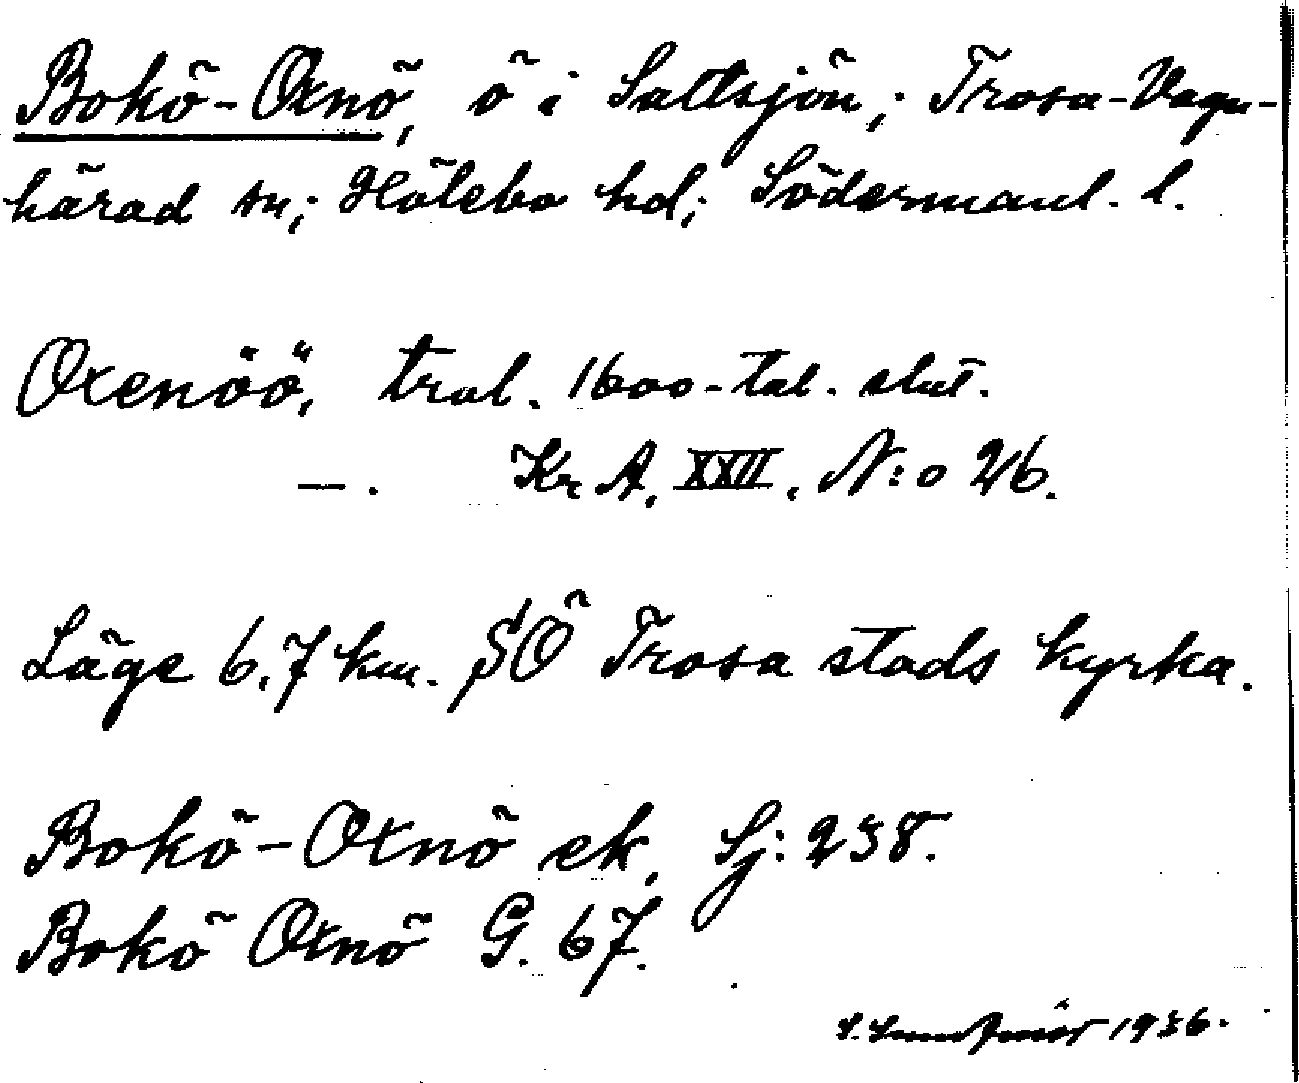 Bokö-Oxnö, ö i Saltsjön; Trosa-Vagn-
härad sn; Hölebo hd; Södermanl. l.
Oxenöö, trol. 1600-tal. slut.
—. Kr A. XXII. N:o 26.
Läge 6,7 km. SÖ Trosa stads kyrka.
Bokö-Oxnö ek. Sj: 238.
Bokö Oxnö G. 67.
S. 1936.